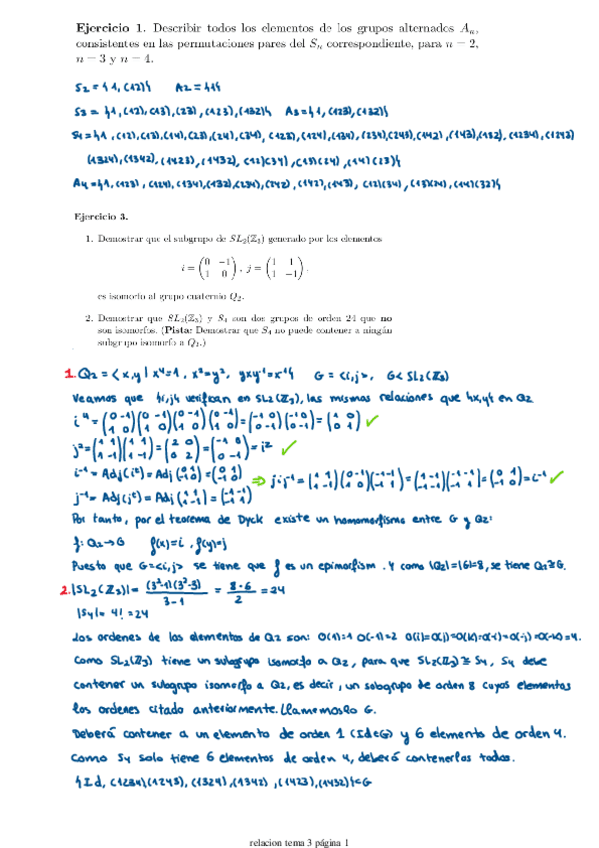 Ejercicio 1. Describir todos los elementos de los grupos alternados Aₙ,
consistentes en las permutaciones pares del Sₙ correspondiente, para n = 2,
n = 3 y n = 4.
S₂ = {1, (12)} A₂ = {1}
S₃ = {1, (12), (13), (23), (123), (132)} A₃ = {1, (123), (132)}
S₄ = {1, (12), (13), (14), (23), (24), (34), (123), (124), (134), (234), (243), (142), (143), (132), (1234), (1243)
(1324), (1342), (1423), (1432), (12)(34), (13)(24), (14)(23)}
A₄ = {1, (123), (124), (134), (132), (234), (243), (142), (143), (12)(34), (13)(24), (14)(32)}
Ejercicio 3.
1. Demostrar que el subgrupo de SL₂(ℤ₃) generado por los elementos
i = (0 −1 ; 1 0), j = (1 1 ; 1 −1),
es isomorfo al grupo cuaternio Q₂.
2. Demostrar que SL₂(ℤ₃) y S₄ son dos grupos de orden 24 que no
son isomorfos. (Pista: Demostrar que S₄ no puede contener a ningún
subgrupo isomorfo a Q₂.)
1. Q₂ = ⟨x, y | x⁴=1, x²=y², yxy⁻¹=x⁻¹⟩ G = <i,j>, G < SL₂(ℤ₃)
Veamos que {i,j} verifican en SL₂(ℤ₃), las mismas relaciones que {x,y} en Q₂
i⁴ = (0 -1 ; 1 0)(0 -1 ; 1 0)(0 -1 ; 1 0)(0 -1 ; 1 0) = (-1 0 ; 0 -1)(-1 0 ; 0 -1) = (1 0 ; 0 1) ✓
j² = (1 1 ; 1 -1)(1 1 ; 1 -1) = (2 0 ; 0 2) = (-1 0 ; 0 -1) = i² ✓
i⁻¹ = Adj(iᵗ) = Adj(0 1 ; -1 0) = (0 1 ; -1 0)
⇒ j·i·j⁻¹ = (1 1 ; 1 -1)(0 -1 ; 1 0)(-1 -1 ; -1 1) = (1 -1 ; -1 -1)(-1 -1 ; -1 1) = (0 1 ; -1 0) = i⁻¹ ✓
j⁻¹ = Adj(jᵗ) = Adj(1 1 ; 1 -1) = (-1 -1 ; -1 1)
Por tanto, por el teorema de Dyck existe un homomorfismo entre G y Q₂:
f: Q₂ → G f(x)=i, f(y)=j
Puesto que G=<i,j> se tiene que f es un epimorfism. Y como |Q₂|=|G|=8, se tiene Q₂≅G.
2. |SL₂(ℤ₃)| = (3²-1)(3²-3)/3-1 = 8·6/2 = 24
|S₄| = 4! = 24
Los ordenes de los elementos de Q₂ son: O(1)=1 O(-1)=2 O(i)=O(j)=O(k)=O(-i)=O(-j)=O(-k)=4.
Como SL₂(ℤ₃) tiene un subgrupo isomorfo a Q₂, para que SL₂(ℤ₃) ≅ S₄, S₄ debe
contener un subgrupo isomorfo a Q₂, es decir, un subgrupo de orden 8 cuyos elementos
los ordenes citado anteriormente. Llamemoslo G.
Deberá contener a un elemento de orden 1 (Id∈G) y 6 elemento de orden 4.
Como S₄ solo tiene 6 elementos de orden 4, deberá contenerlos todos.
{Id, (1234)(1243), (1324), (1342), (1423), (1432)}<G
relacion tema 3 página 1